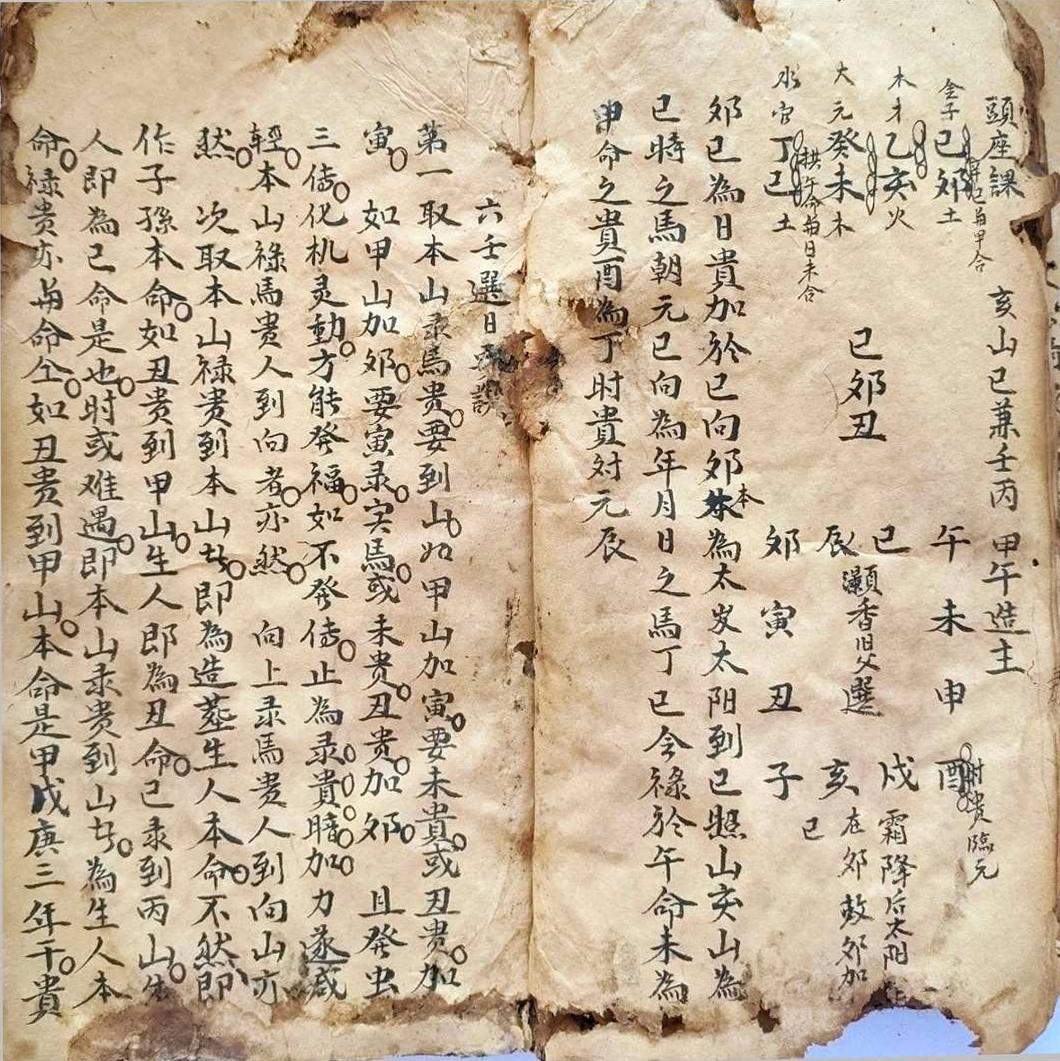 頭座課 亥山巳兼壬丙 甲午造主
金子 己夘 土
木才 乙亥 火
大元 癸未 木
水官 丁巳 土
拱午命与日未合
己夘丑
午 未 申 酉 时贵臨元
巳 戌 霜降后太阳
辰 亥 在夘故夘加巳
灝香旧父選
夘 寅 丑 子
夘巳為日貴加於巳向夘本為太岁太阳到巳照山亥山為
巳時之馬朝元巳向為年月日之馬丁巳令禄於午命未為
申命之貴酉為丁时貴对元辰
六壬選日
第一取本山彔馬貴要到山如甲山加寅要未貴或丑贵加
寅 如甲山加夘要寅彔实馬或未贵丑贵加夘 且癸虫
三传化机灵動方能發福如不發传止為彔貴暗加力遂咸
輕本山祿馬贵人到向者亦然 向上彔馬贵人到向山亦
然 次取本山禄贵到本山者即為造葬生人本命不然即
作子孫本命如丑贵到甲山生人即為丑命己彔到丙山生
人即為己命是也时或难遇即本山彔贵到山者為生人本
命禄贵亦与命仝如丑贵到甲山本命是甲戊庚三年干貴